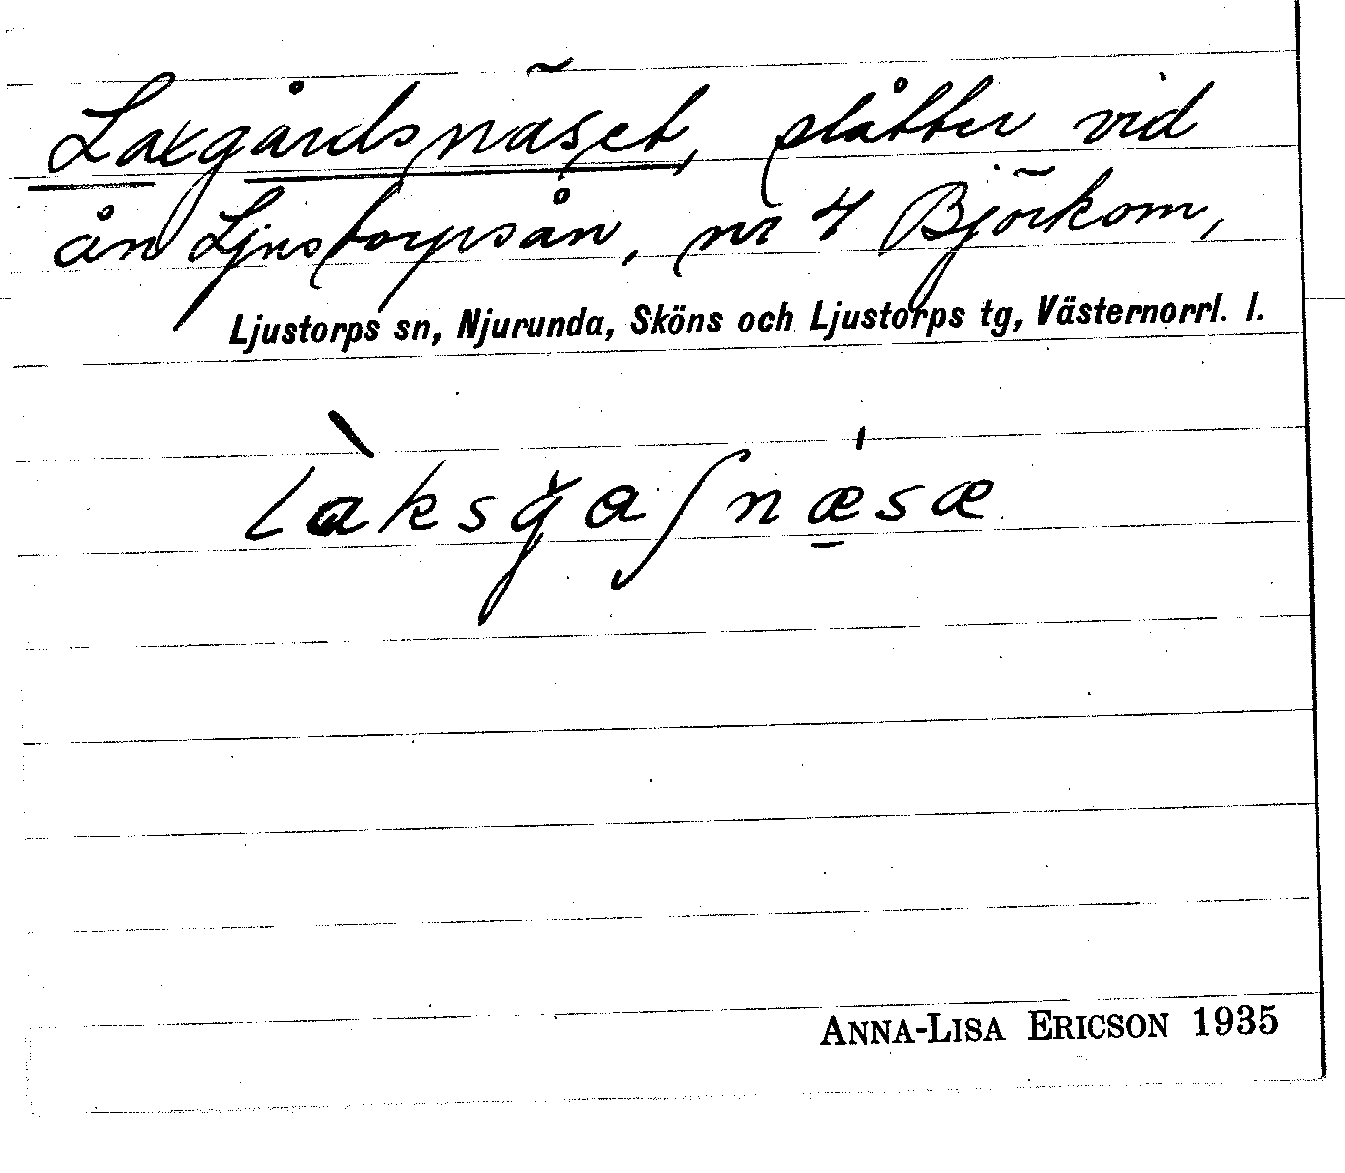 Laxgårdsnäset, slåtter vid
ån Ljustorpsån, nr 4 Björkom,
Ljustorps sn, Njurunda, Sköns och Ljustorps tg, Västernorrl. l.
làksgaʃnæ̲̍sæ
ANNA-LISA ERICSON 1935